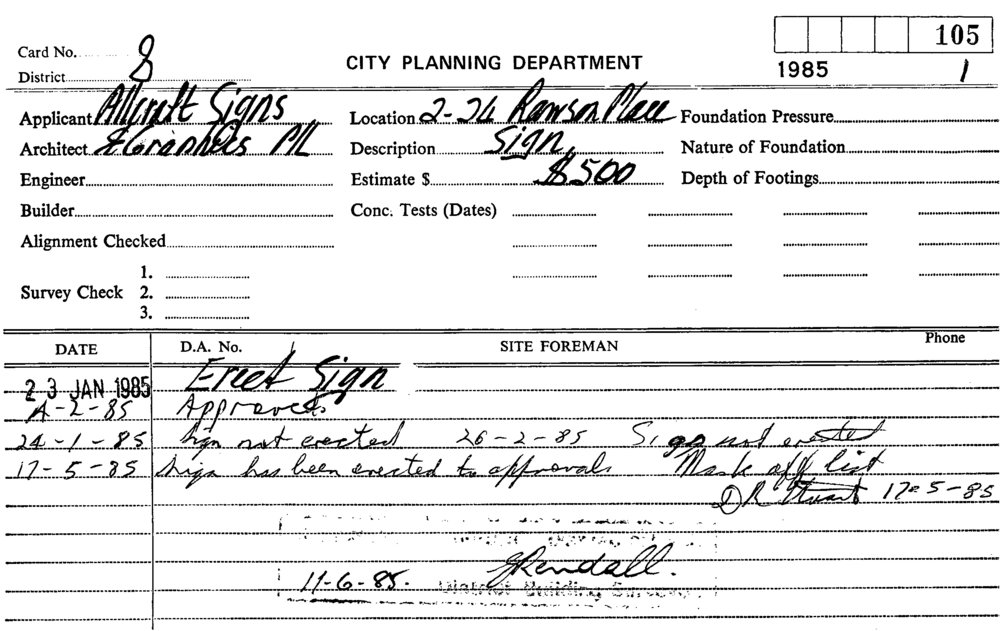 105
Card No. 8
CITY PLANNING DEPARTMENT
1985 1
District
Applicant Allcraft Signs Location 2-24 Rawson Place Foundation Pressure
Architect & Graphics P/L Description Sign, Nature of Foundation
Engineer Estimate $ $500 Depth of Footings
Builder Conc. Tests (Dates)
Alignment Checked
1.
Survey Check 2.
3.
DATE D.A. No. SITE FOREMAN Phone
23 JAN 1985 Erect Sign
A-2-85 Approved
24-1-85 Sign not erected 26-2-85 Sign not erected
17-5-85 Sign has been erected to approvals Mask off list
D R Stuart 17-5-85
11-6-85. District Building Surveyor